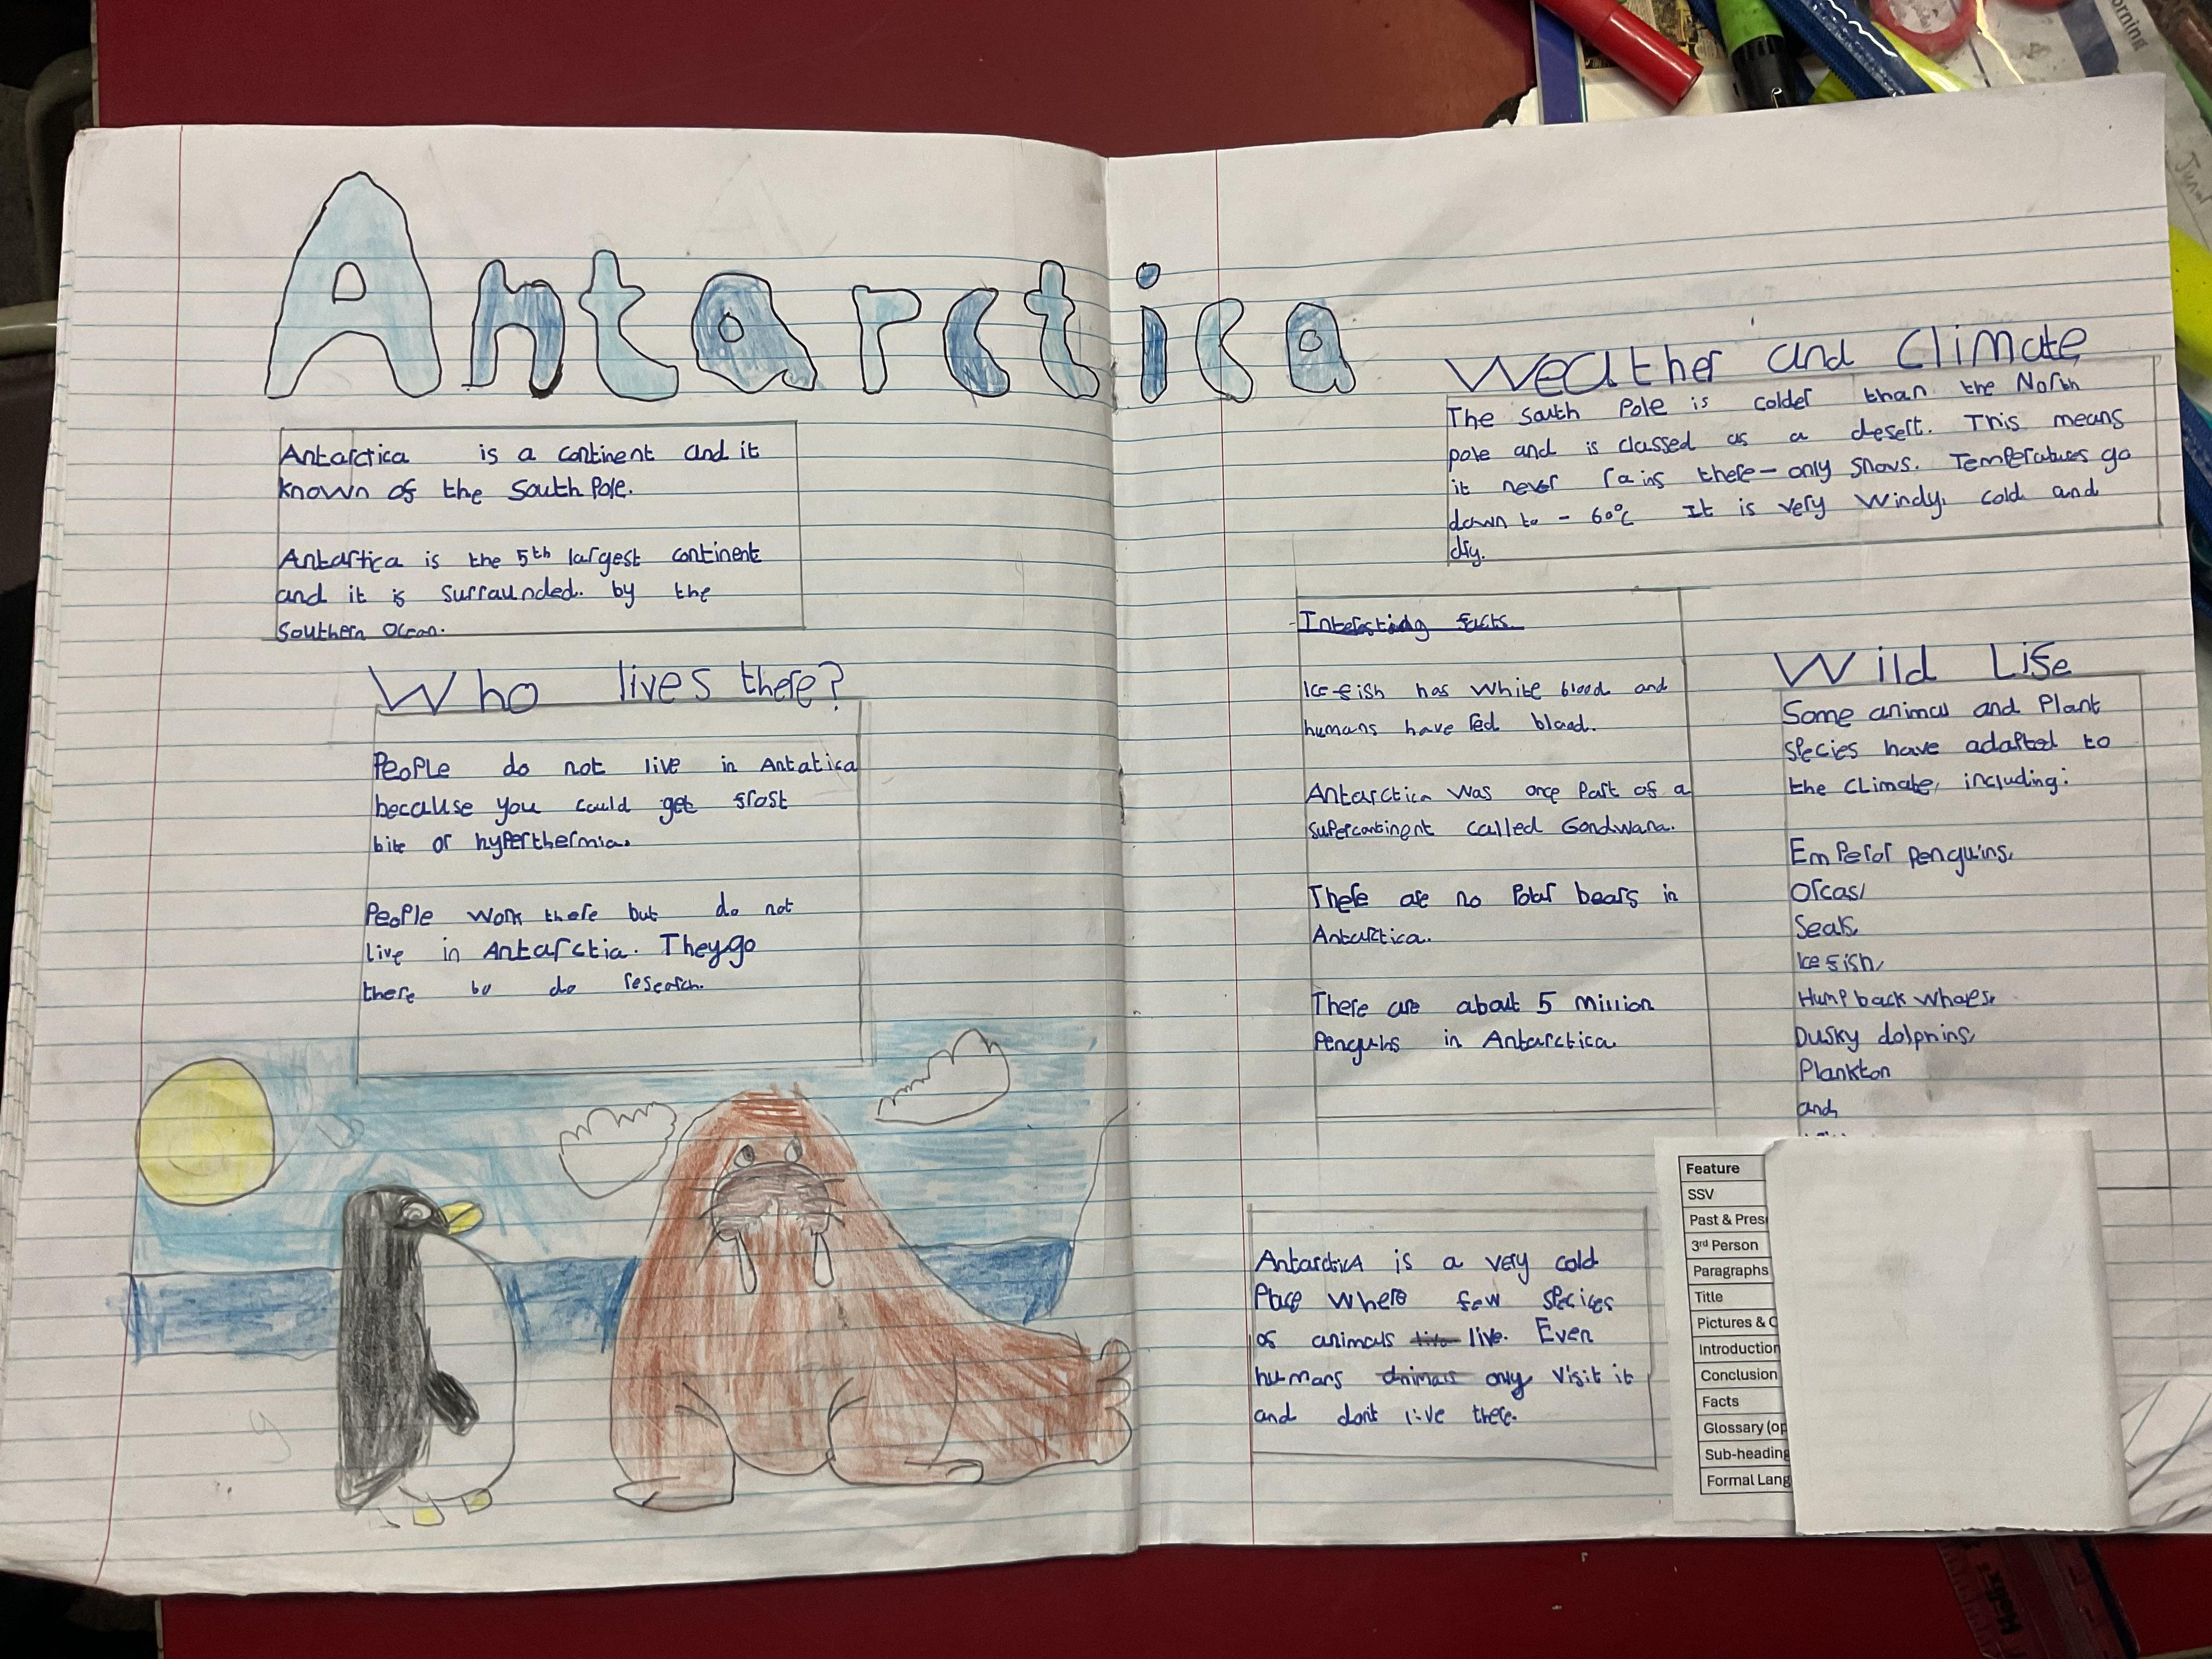 Antarctica
Antarctica is a continent and it
known of the South Pole.
Antartica is the 5th largest continent
and it is surrounded. by the
Southern Ocean.
Who lives there?
People do not live in Antatica
because you could get frost
bite or hyperthermia.
People work there but do not
live in Antarctia. They go
there to do research.
Weather and Climate
The South Pole is colder than the North
pole and is classed as a desert. This means
it never rains there - only snows. Temperatures go
down to - 60°c It is very windy, cold and
dry.
Interesting facts.
Ice fish has white blood and
humans have red blood.
Antarctica was once part of a
supercontinent called Gondwana.
There are no Polar bears in
Antarctica.
There are about 5 million
Penguins in Antarctica
Wild Life
Some animal and Plant
species have adapted to
the climate, including:
Emperor penguins,
Orcas,
Seals,
Ice fish,
Humpback whales,
Dusky dolphins,
Plankton
and,
Antarctica is a very cold
Place where few species
of animals live. Even
humans animals only visit it
and don't live there.
Feature
SSV
Past & Pres
3rd Person
Paragraphs
Title
Pictures & C
Introduction
Conclusion
Facts
Glossary (op
Sub-heading
Formal Lang
orning
Helix